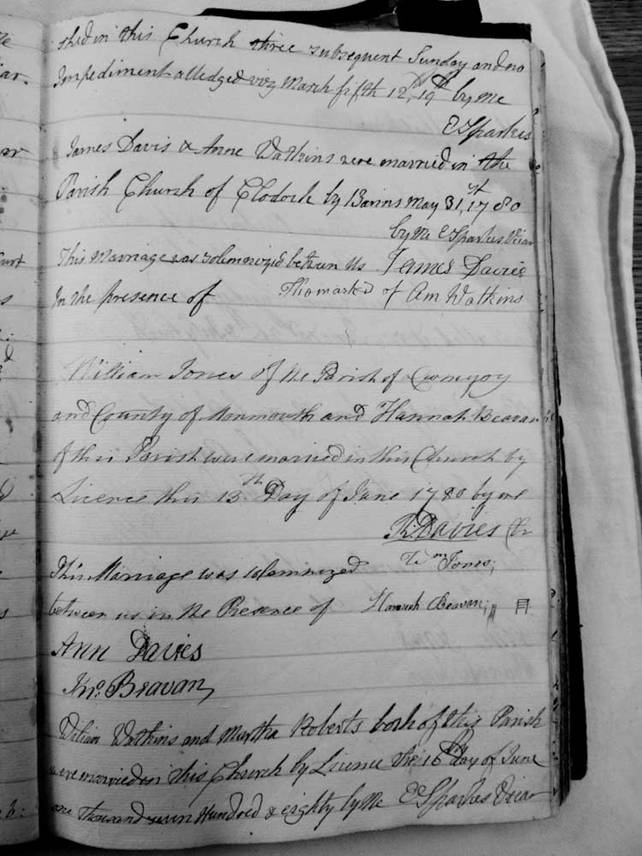 shed in this Church three subsequent Sunday and no
Impediment alledged viz March fifth 12th, 19th by me
E Sparkes
James Davis & Anne Watkins were married in the
Parish Church of Clodock by Banns May 31st, 1780
by Me E Sparkes Vicar
This Marriage was solemnized between Us James Davies
In the presence of The mark of Ann Watkins
William Jones of the Parish of Cwmyoy
and County of Monmouth and Hannah Beavan
of this Parish were married in this Church by
Licence this 13th Day of June 1780 by me
Th: Davies Cu
This Marriage was solemnized Wm Jones;
between us in the Presence of Hannah Bewan;
Ann Davies
Jno. Bravan,
William Watkins and Martha Roberts both of this Parish
were married in this Church by Licence the 16th day of June
one thousand seven Hundred & eighty by Me E Sparkes Vicar